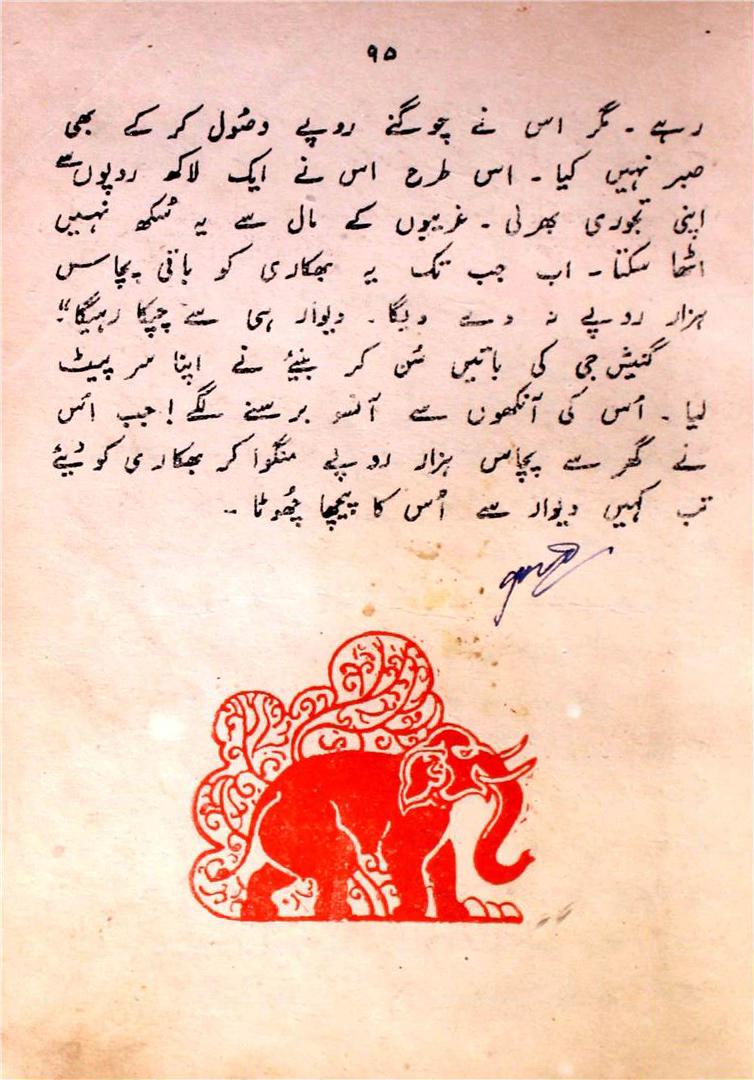 ۹۵
رہے ۔ مگر اس نے چوگنے روپے وصُول کر کے بھی
صبر نہیں کیا ۔ اس طرح اس نے ایک لاکھ روپوں سے
اپنی تجوری بھر لی ۔ غریبوں کے مال سے یہ سُکھ نہیں
اٹھا سکتا ۔ اب جب تک یہ بھکاری کو باقی پچاس
ہزار روپے نہ دے دیگا ۔ دیوار ہی سے چپکا رہیگا"
گنیش جی کی باتیں سُن کر بنیئے نے اپنا سر پیٹ
لیا ۔ اُس کی آنکھوں سے آنسو برسنے لگے ! جب اس
نے گھر سے پچاس ہزار روپے منگوا کر بھکاری کو دیئے
تب کہیں دیوار سے اُس کا پیچھا چُھوٹا ۔